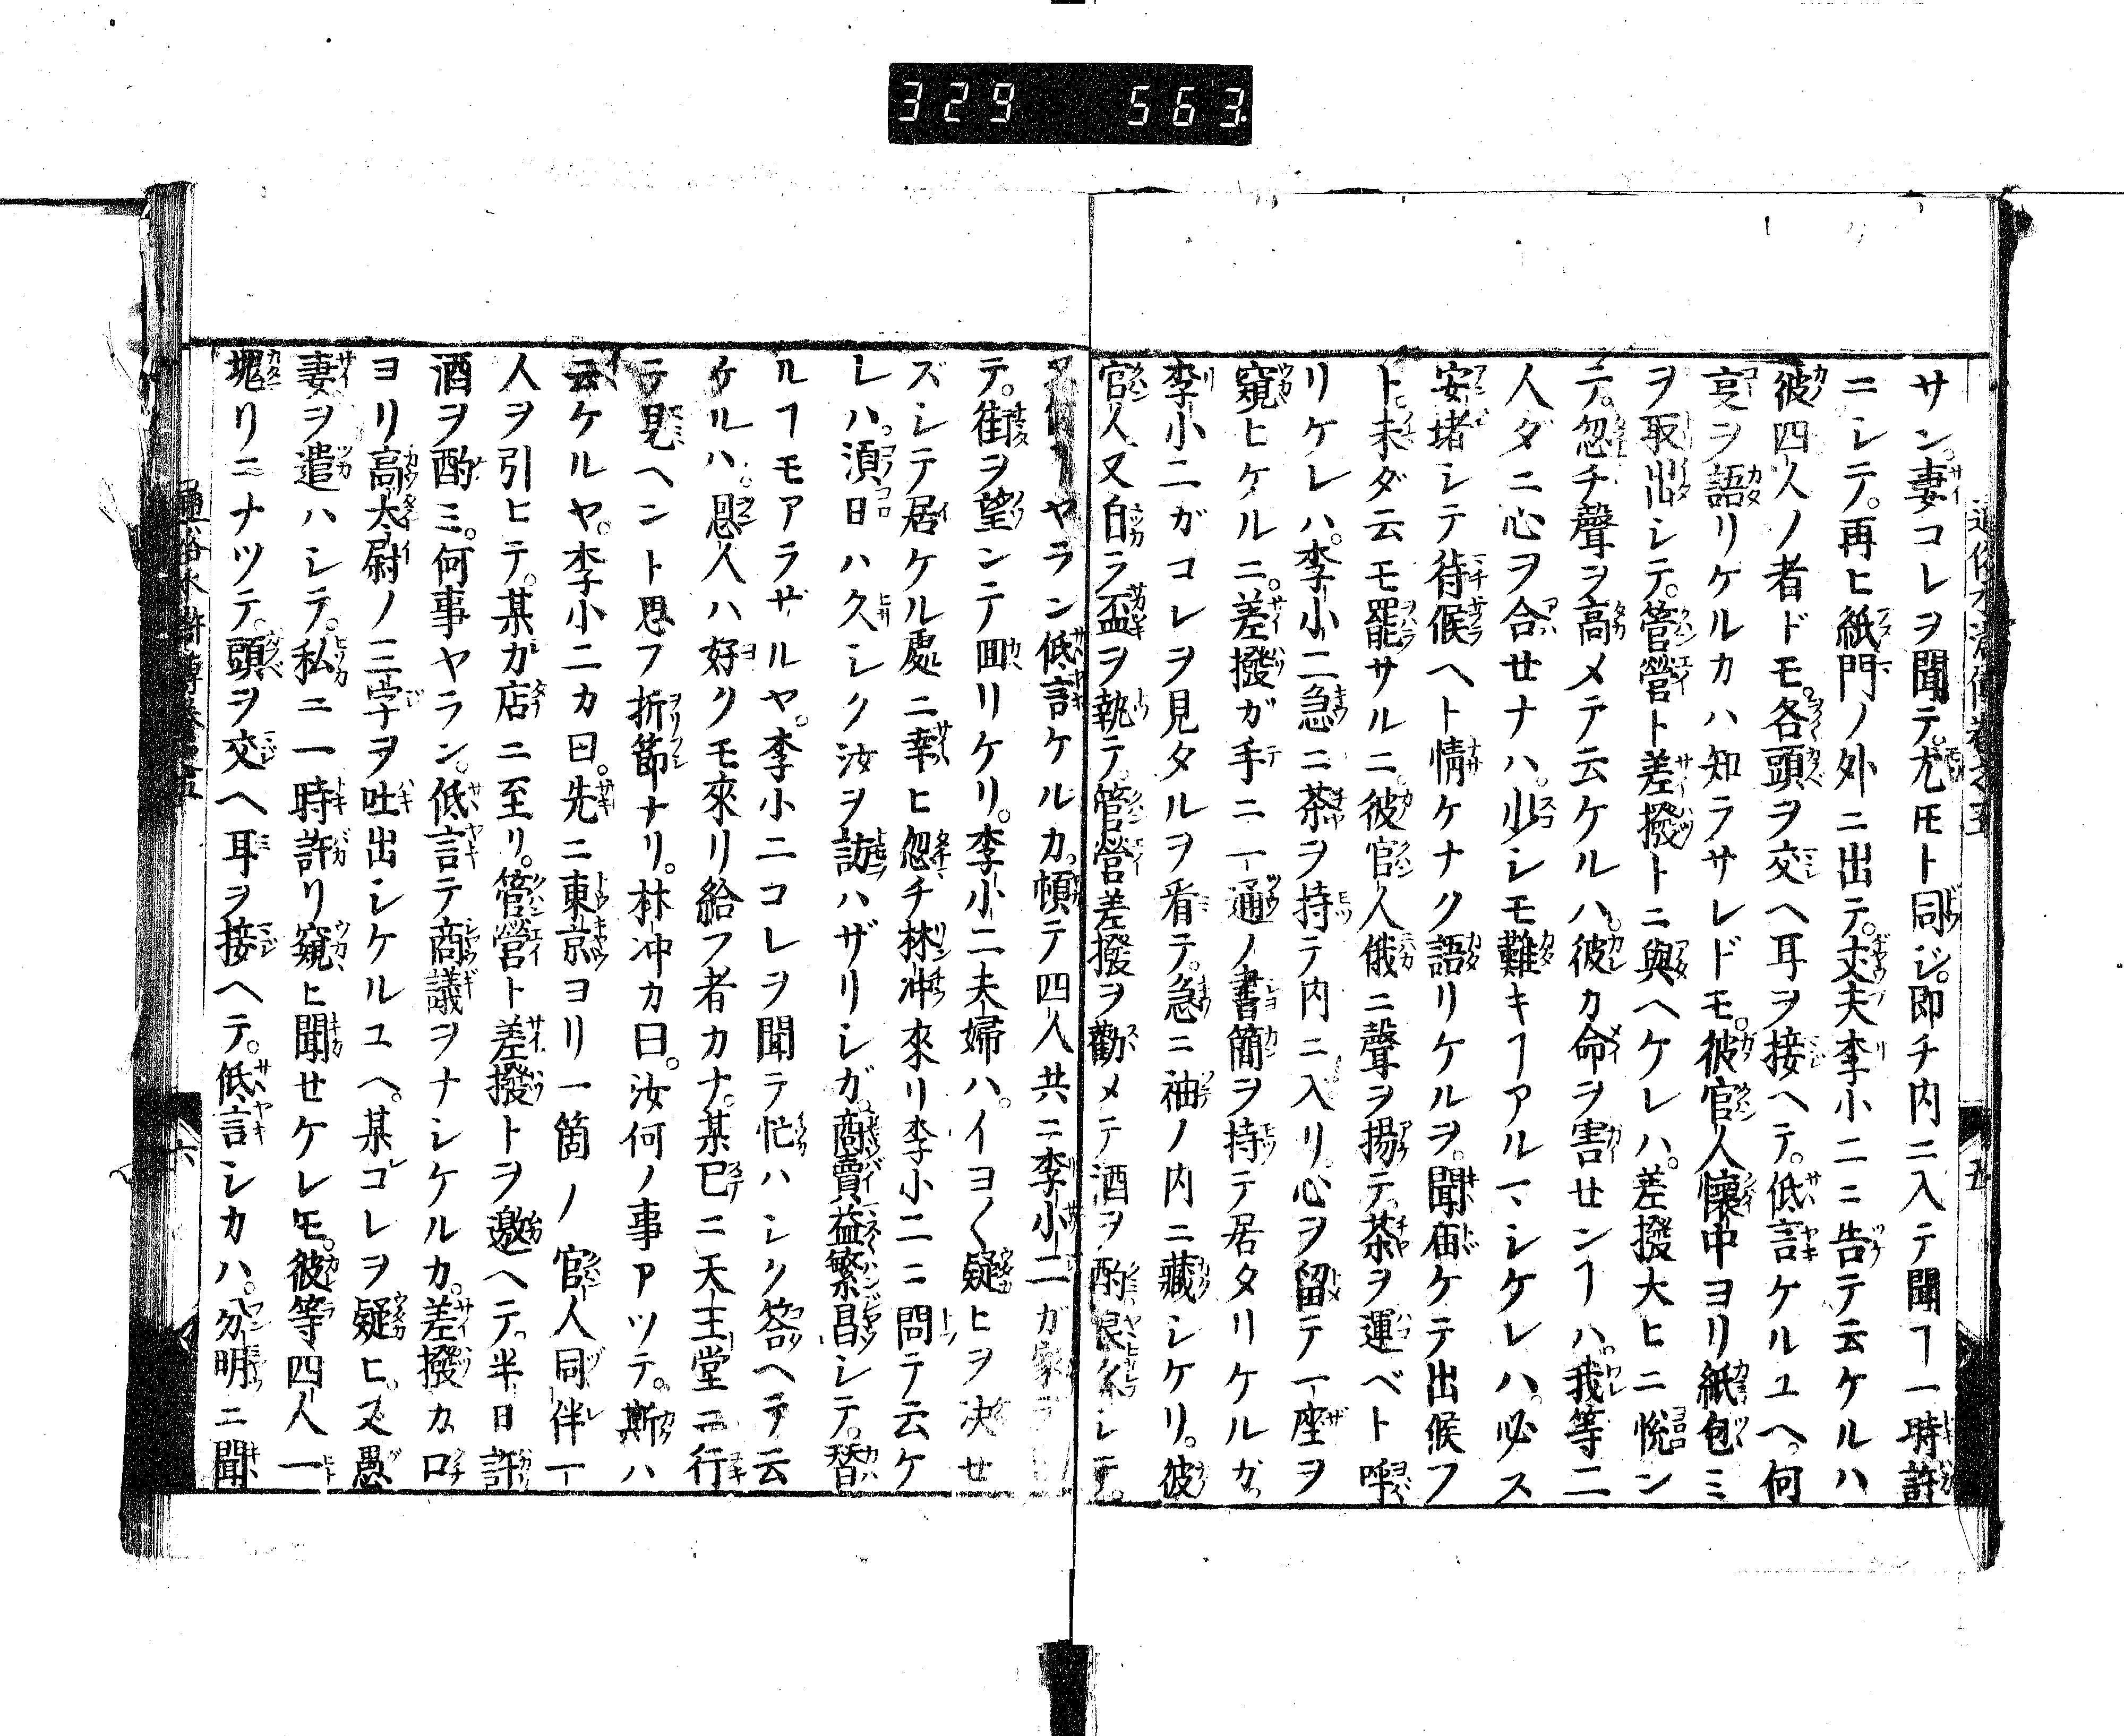 329 563
通俗水滸傳卷之五
サン。妻コレヲ聞テ。尤モト同ジ。即チ内ニ入テ聞ヿ一時許
ニシテ。再ヒ紙門ノ外ニ出テ。丈夫李小二ニ告テ云ケルハ
彼四人ノ者ドモ。各頭ヲ交ヘ耳ヲ接ヘテ。低言ケルユヘ。何
事ヲ語リケルカハ知ラサレドモ。彼官人懷中ヨリ紙包ミ
ヲ取出シテ。管營ト差撥トニ與ヘケレハ。差撥大ヒニ悦ン
テ。忽チ聲ヲ高メテ云ケルハ。彼カ命ヲ害せンヿハ。我等二
人タニ心ヲ合せナハ。少シモ難キヿアルマシケレハ。必ス
安堵シテ待候ヘト情ケナク語リケルヲ。聞届ケテ出候フ
ト。未ダ云モ罷サルニ。彼官人俄ニ聲ヲ揚テ。茶ヲ運ベト呼
リケレハ。李小二急ニ茶ヲ持テ内ニ入リ。心ヲ留テ一座ヲ
窺ヒケルニ。差撥ガ手ニ一通ノ書簡ヲ持テ居タリケルガ。
李小二ガコレヲ見タルヲ看テ。急ニ袖ノ内ニ藏シケリ。彼
官人又自ラ盃ヲ執テ。管營差撥ヲ勸メテ酒ヲ酌良久シテ。
五
ヤラン低言ケルカ。頓テ四人共ニ李小二ガ家ヲ
テ。街ヲ望ンテ囬リケリ。李小二夫婦ハ。イヨ〱疑ヒヲ决せ
ズシテ居ケル處ニ幸ヒ忽チ林冲來リ李小二ニ問テ云ケ
レハ。湏日ハ久シク汝ヲ訪ハザリシガ。商賣益繁昌シテ。替
ルヿモアラザルヤ。李小二コレヲ聞テ忙ハシク答ヘテ云
ケルハ。恩人ハ好クモ來リ給フ者カナ。某已ニ天王堂ニ行
テ見ヘント思フ折節ナリ。林冲カ曰。汝何ノ事アツテ。斯ハ
云ケルヤ。李小二カ曰。先ニ東京ヨリ一箇ノ官人同伴一
人ヲ引ヒテ。某カ店ニ至リ。管營ト差撥トヲ邀ヘテ。半日許
酒ヲ酌ミ。何事ヤラン。低言テ商議ヲナシケルカ。差撥カ口
ヨリ高太尉ノ三字ヲ吐出シケルユヘ。某コレヲ疑ヒ。又愚
妻ヲ遣ハシテ。私ニ一時許リ窺ヒ聞せケレ𪜈。彼等四人一
塊リニナツテ。頭ヲ交ヘ耳ヲ接ヘテ。低言シカハ。分明ニ聞
通俗水滸傳卷之五
六